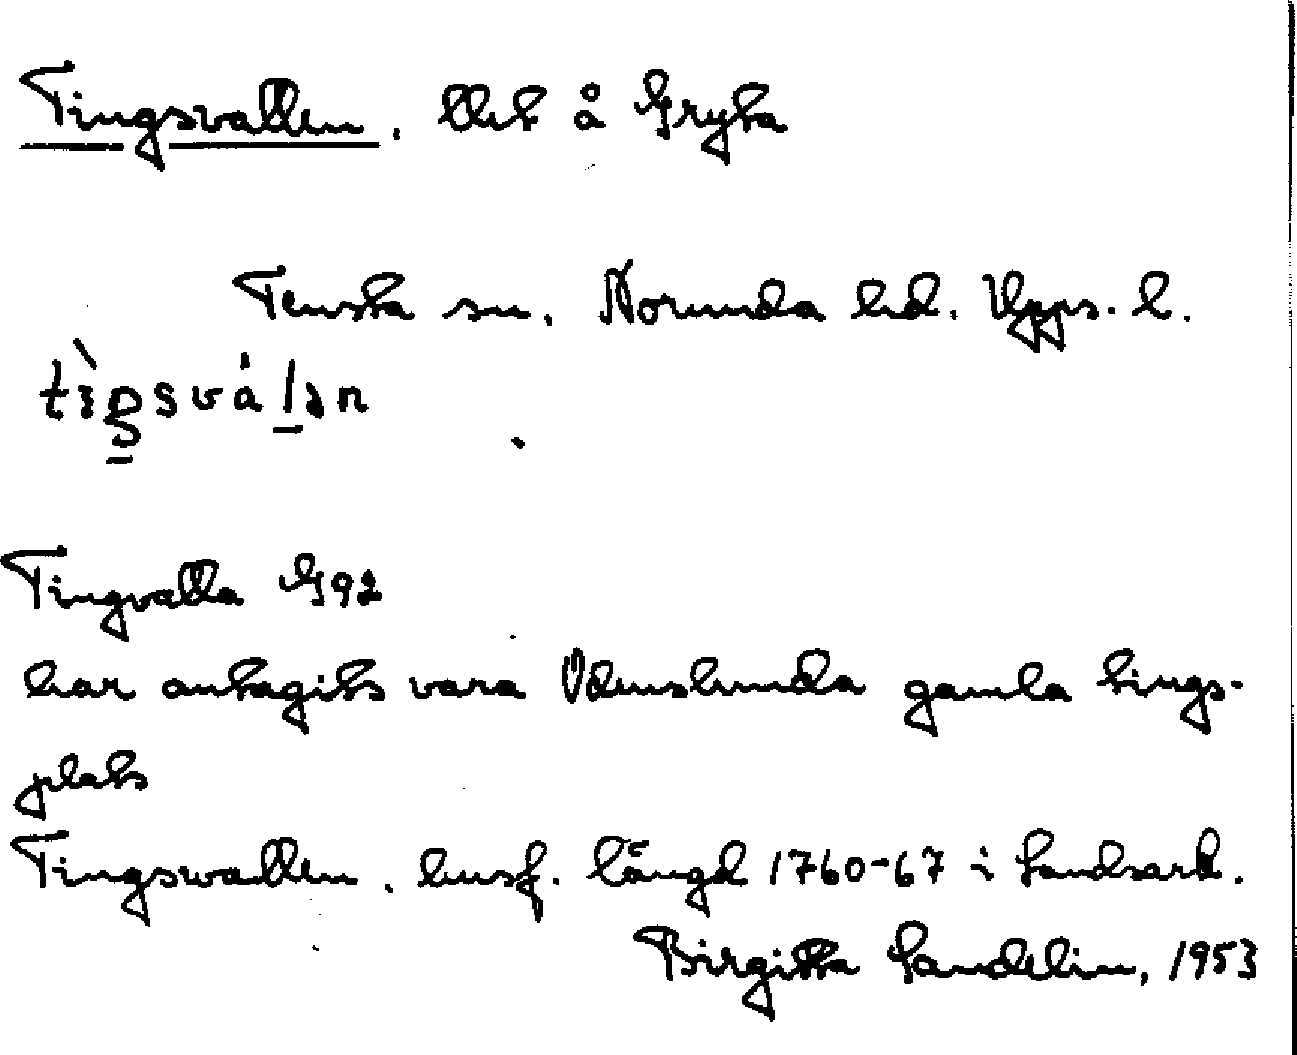 Tingsvallen. Utet å Gryta
Tensta sn. Norunda hd. Upps. l.
tìŋsvålən
Tingvalla G92
har antagits vara Odenslunda gamla tings-
plats
Tingswallen. husf. längd 1760-67 i Landsark.
Birgitta Sandelin, 1953